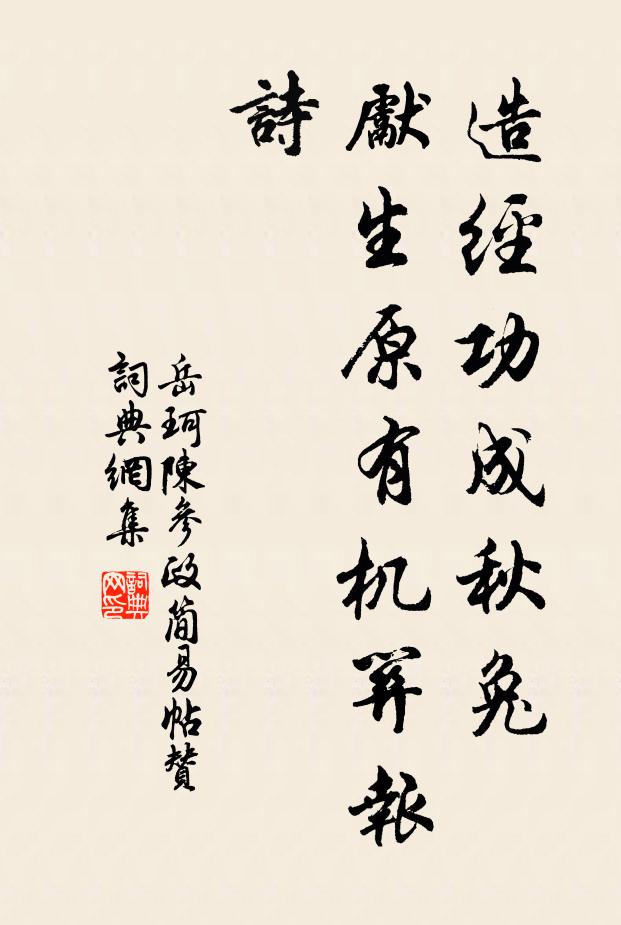 造經功成秋兔
獻生原有机笄報
詩
岳珂陳參政简易帖贊
詞典網集
詞典网印